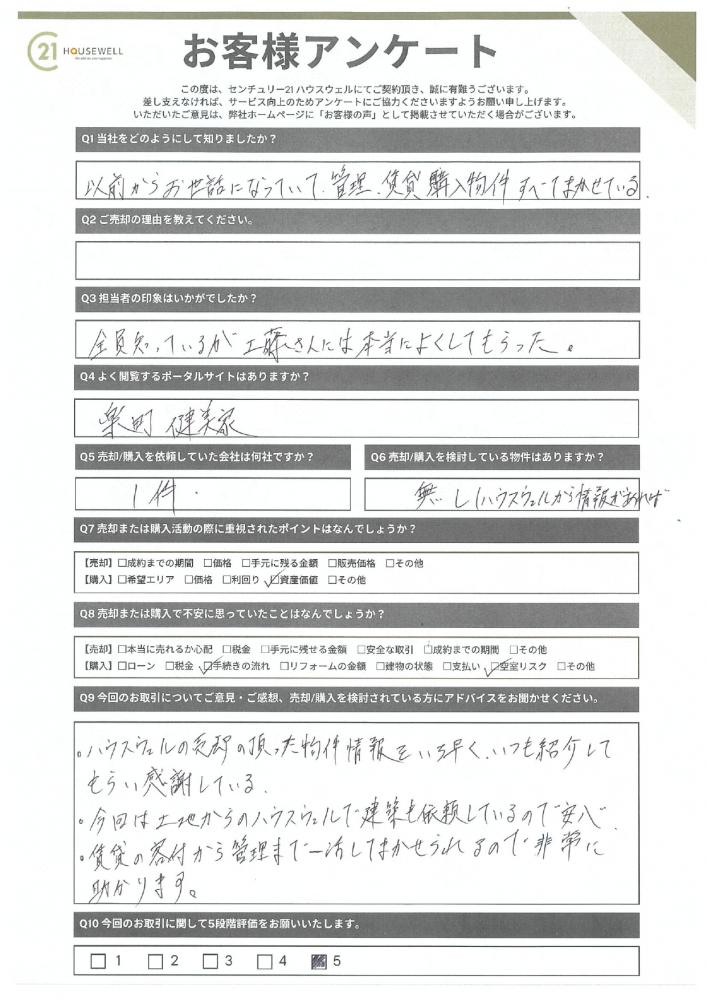 21 HOUSEWELL
お客様アンケート
この度は、センチュリー21ハウスウェルにてご契約頂き、誠に有難うございます。
差し支えなければ、サービス向上のためアンケートにご協力くださいますようお願い申し上げます。
いただいたご意見は、弊社ホームページに「お客様の声」として掲載させていただく場合がございます。
Q1 当社をどのようにして知りましたか？
以前からお世話になっていて、管理、賃貸購入物件すべてまかせている。
Q2 ご売却の理由を教えてください。
Q3 担当者の印象はいかがでしたか？
全員知っているが工藤さんには本当によくしてもらった。
Q4 よく閲覧するポータルサイトはありますか？
楽町 健美家
Q5 売却/購入を依頼していた会社は何社ですか？ Q6 売却/購入を検討している物件はありますか？
1件. 無し(ハウスウェルから情報があれば
Q7 売却または購入活動の際に重視されたポイントはなんでしょうか？
【売却】□成約までの期間 □価格 □手元に残る金額 □販売価格 □その他
【購入】□希望エリア □価格 □利回り ☑資産価値 □その他
Q8 売却または購入で不安に思っていたことはなんでしょうか？
【売却】□本当に売れるか心配 □税金 □手元に残せる金額 □安全な取引 □成約までの期間 □その他
【購入】□ローン □税金 ☑手続きの流れ □リフォームの金額 □建物の状態 □支払い ☑空室リスク □その他
Q9 今回のお取引についてご意見・ご感想、売却/購入を検討されている方にアドバイスをお聞かせください。
・ハウスウェルの の頂った物件情報をいち早く、いつも紹介して
もらい感謝している。
・今回は土地からのハウスウェルで建築も依頼しているので安心
・賃貸の客付から管理まで一括してまかせられるので非常に
助かります。
Q10 今回のお取引に関して5段階評価をお願いいたします。
□ 1 □ 2 □ 3 □ 4 ■ 5